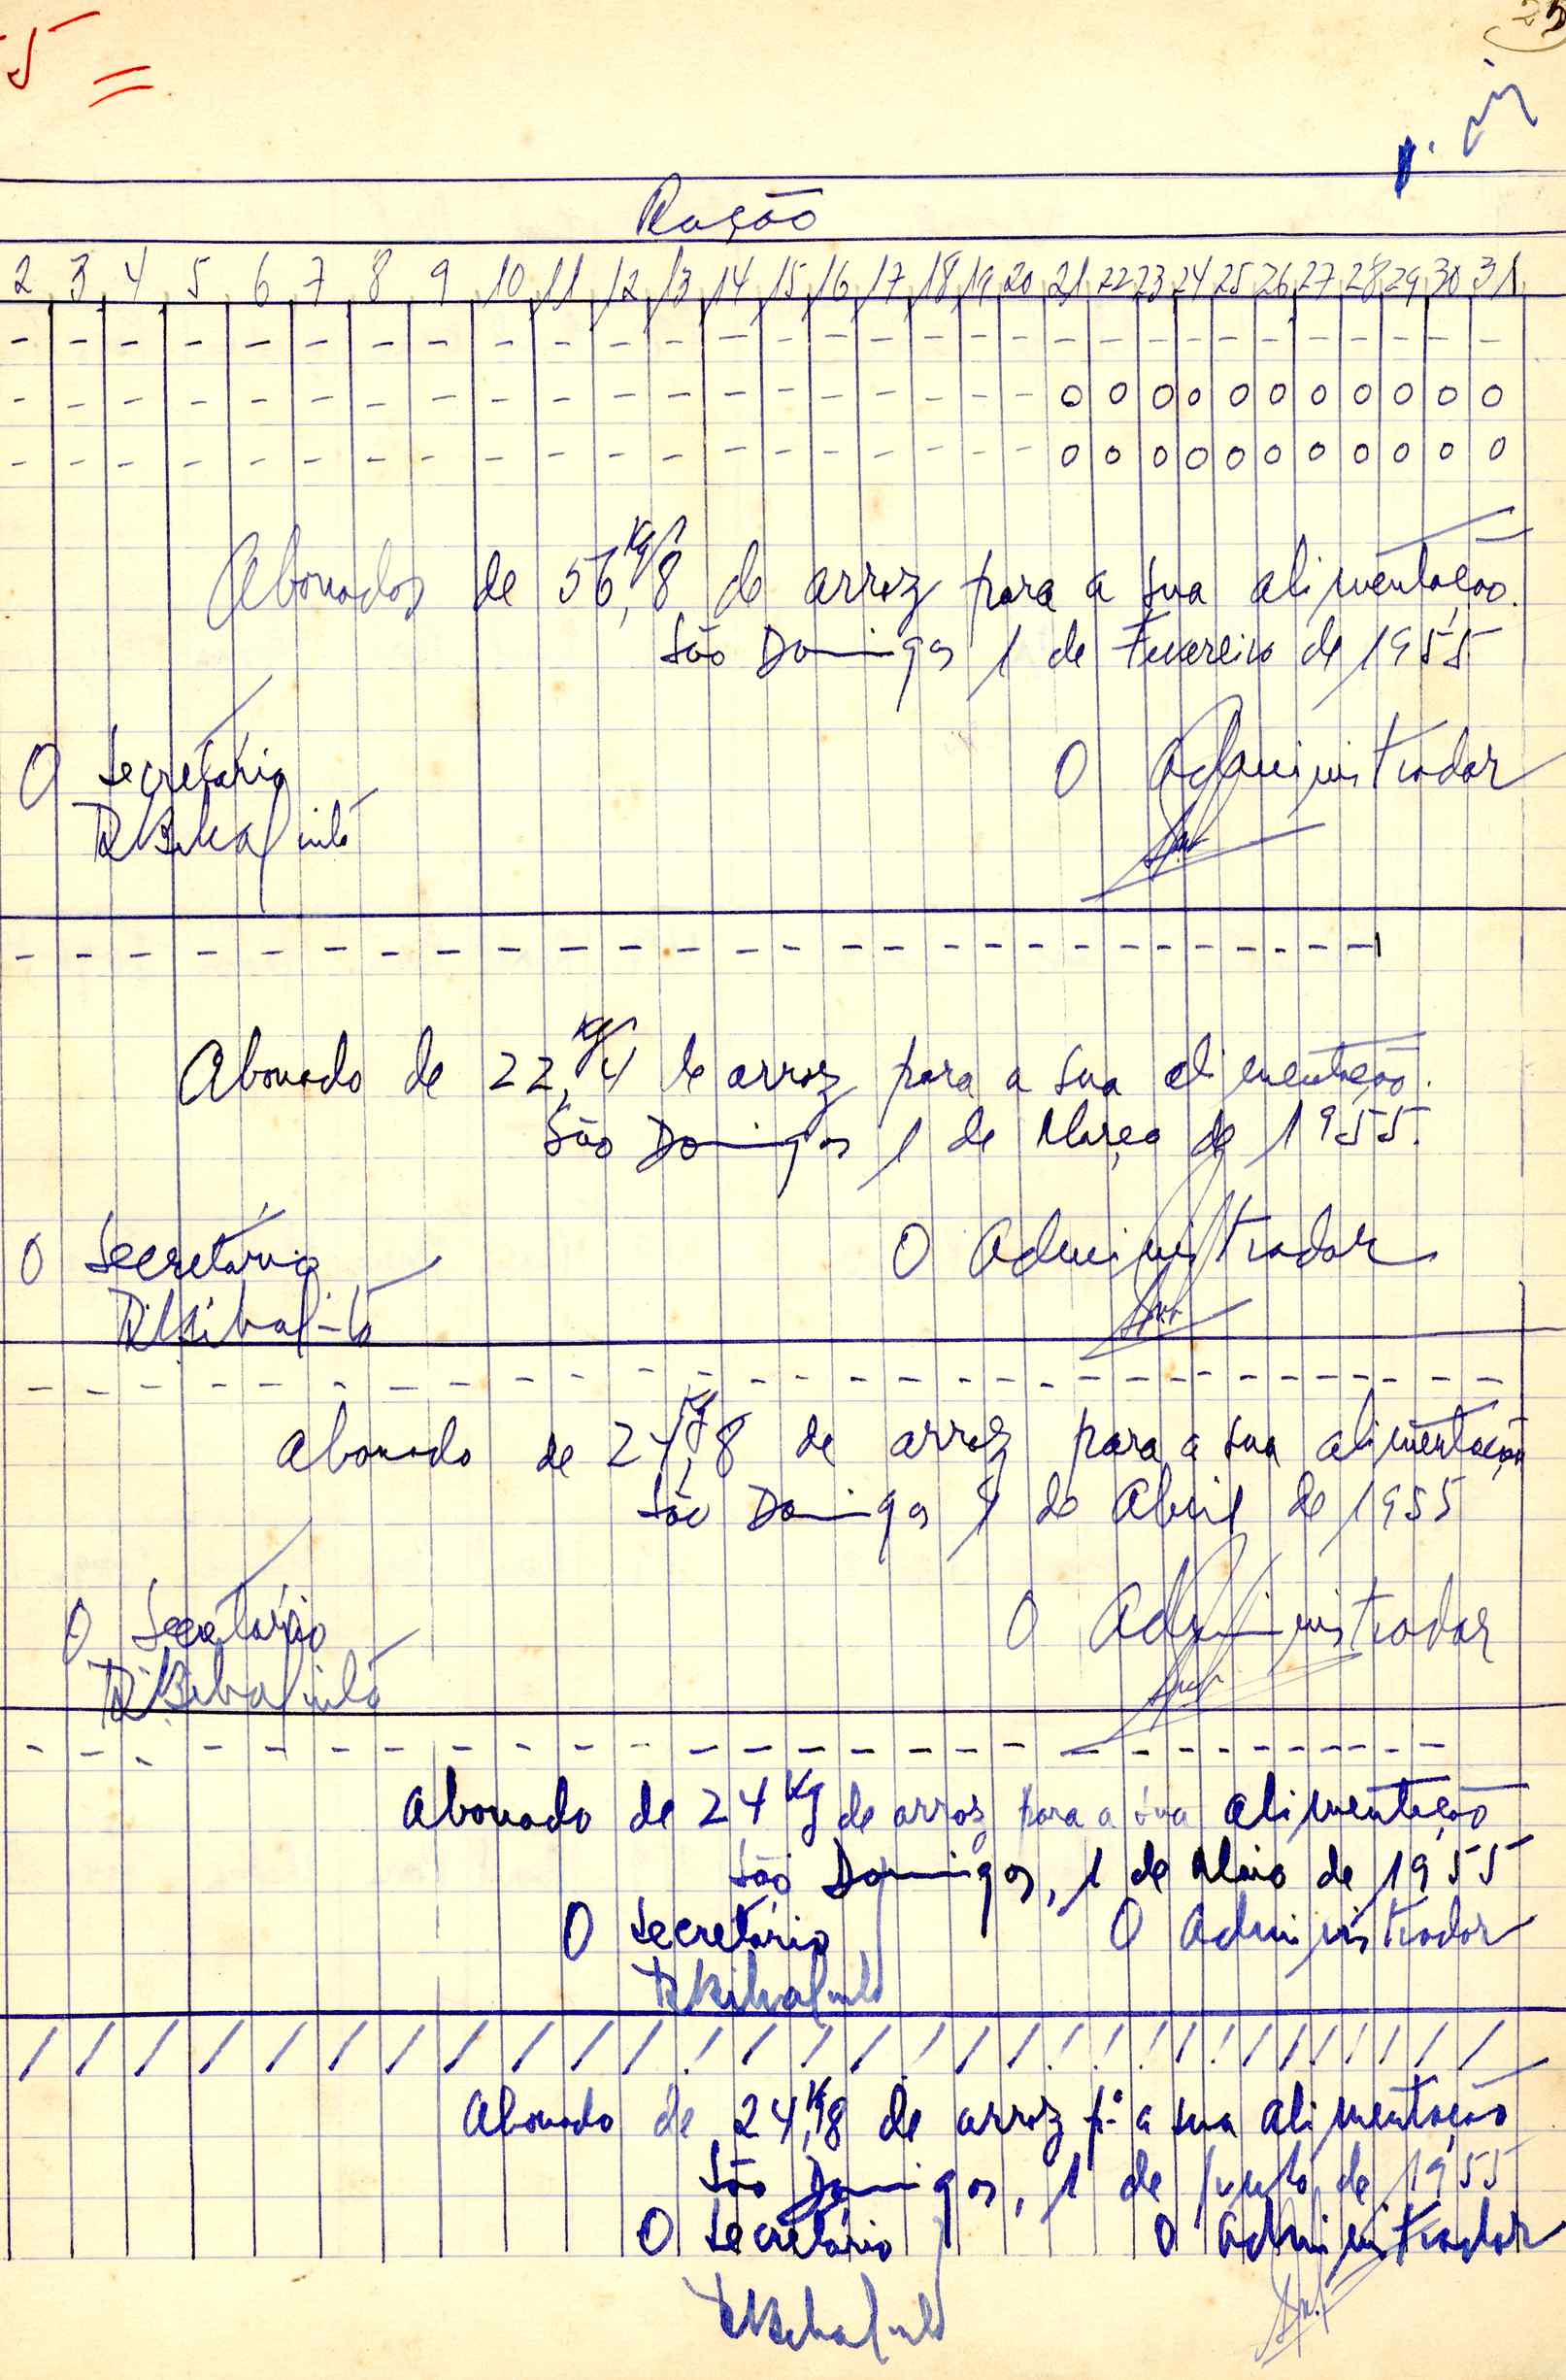 5 =
25
Ração
2 3 4 5 6 7 8 9 10 11 12 13 14 15 16 17 18 19 20 21 22 23 24 25 26 27 28 29 30 31
- - - - - - - - - - - - - - - - - - - - - - - - - - - - - -
- - - - - - - - - - - - - - - - - - - o o o o o o o o o o o
- - - - - - - - - - - - - - - - - - - o o o o o o o o o o o
Abonados de 56,kgs8 de arroz para a sua alimentação.
São Domingos 1 de Fevereiro de 1955
O Secretário O Administrador
- - - - - - - - - - - - - - - - - - - - - - - - - - -
Abonado de 22,kgs4 de arroz para a sua alimentação.
São Domingos 1 de Março de 1955.
O Secretário O Administrador
- - - - - - - - - - - - - - - - - - - - - - - - - - - - - -
Abonado de 24,kg8 de arroz para a sua alimentação
São Domingos 1 de Abril de 1955
O Secretário O Administrador
- - - - - - - - - - - - - - - - - - - - - - - - - - - - -
Abonado de 24 Kg de arroz para a sua alimentação
São Domingos, 1 de Maio de 1955
O Secretário O Administrador
/ / / / / / / / / / / / / / / / / / / / / / / / / / / / / /
Abonado de 24,K8 de arroz pª a sua alimentação
São Domingos, 1 de Junho de 1955
O Secretário O Administrador